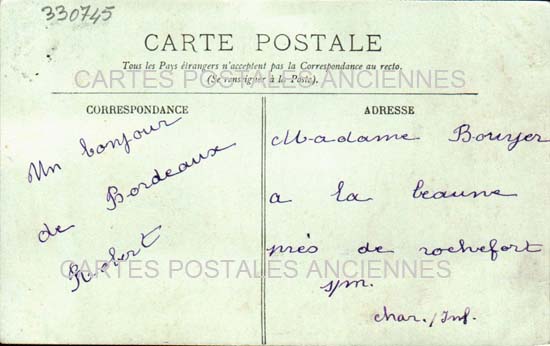 330745
CARTE POSTALE
Tous les Pays étrangers n'acceptent pas la Correspondance au recto.
(Se renseigner à la Poste).
CARTES POSTALES ANCIENNES
CORRESPONDANCE
Un bonjour
de Bordeaux
Robert
ADRESSE
Madame Bouyer
a la beaune
près de rochefort
s/m.
char./Inf.
CARTES POSTALES ANCIENNES